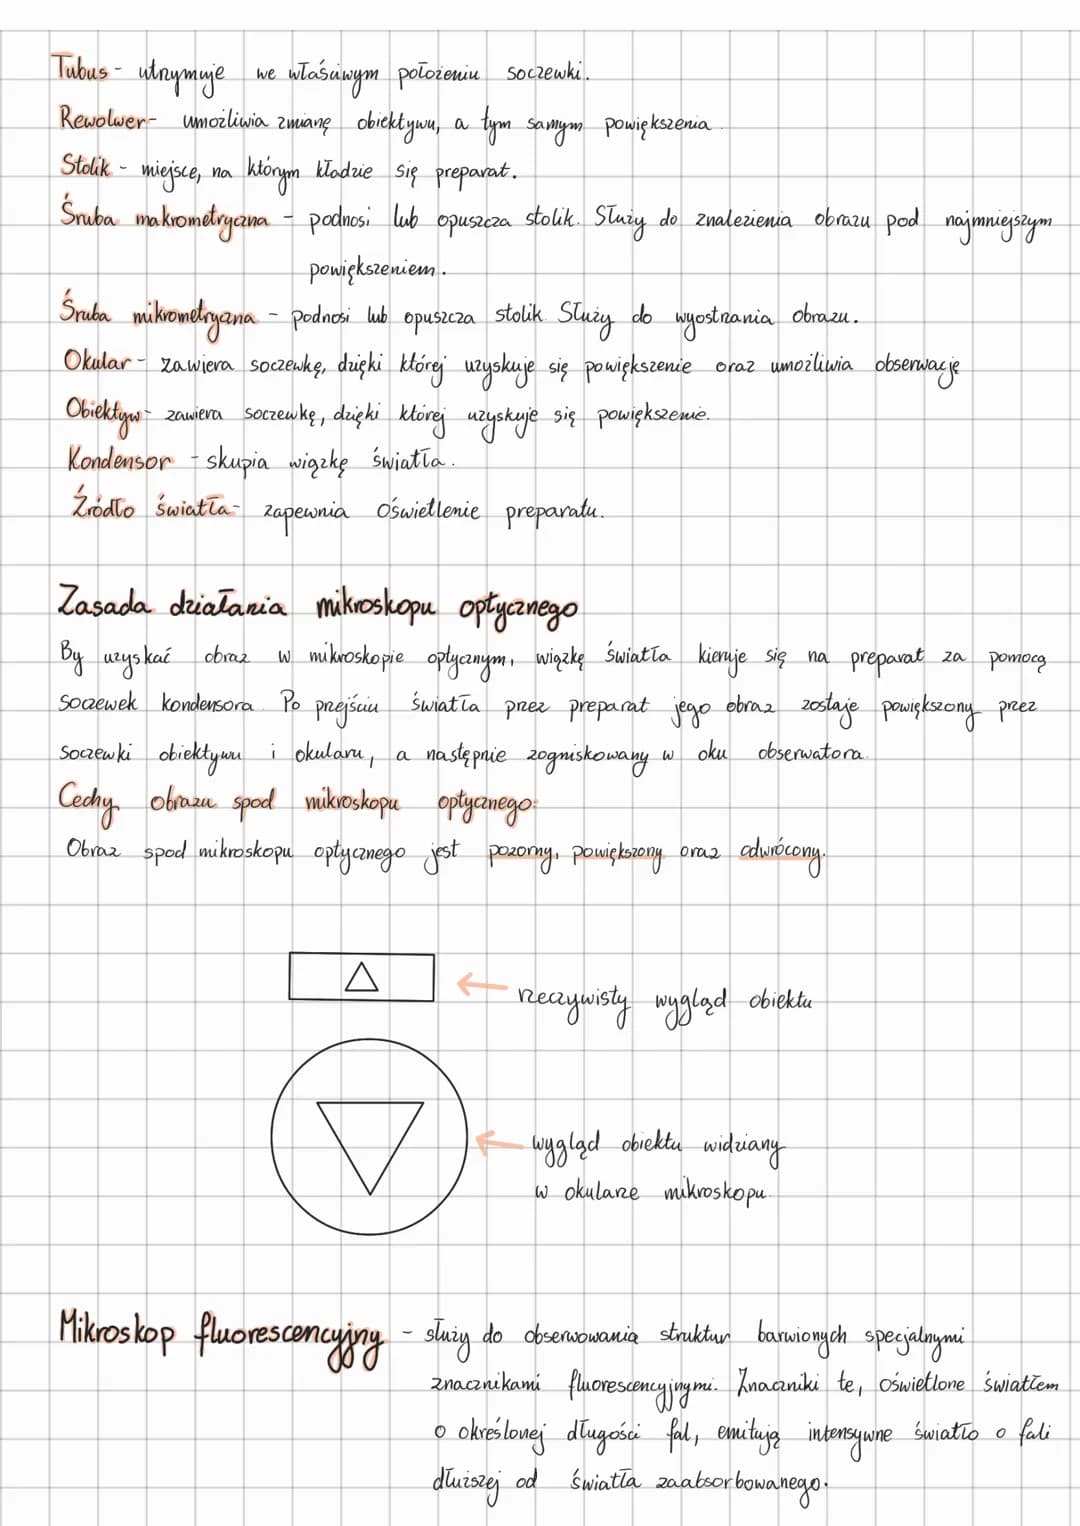 Tubus - utrzymuje we właściwym położeniu soczewki.
Rewolwer - umożliwia zmianę obiektywu, a tym samym powiększenia.
Stolik - miejsce, na którym kładzie się preparat.
Śruba makrometryczna - podnosi lub opuszcza stolik. Służy do znalezienia obrazu pod najmniejszym
powiększeniem.
Śruba mikrometryczna - podnosi lub opuszcza stolik. Służy do wyostrzania obrazu.
Okular - zawiera soczewkę, dzięki której uzyskuje się powiększenie oraz umożliwia obserwację
Obiektyw - zawiera soczewkę, dzięki której uzyskuje się powiększenie.
Kondensor - skupia wiązkę światła.
Źródło światła - zapewnia oświetlenie preparatu.
Zasada działania mikroskopu optycznego
By uzyskać obraz w mikroskopie optycznym, wiązkę światła kieruje się na preparat za pomocą
soczewek kondensora. Po przejściu światła przez preparat jego obraz zostaje powiększony przez
soczewki obiektywu i okularu, a następnie zogniskowany w oku obserwatora.
Cechy obrazu spod mikroskopu optycznego:
Obraz spod mikroskopu optycznego jest pozorny, powiększony oraz odwrócony.
rzeczywisty wygląd obiektu
wygląd obiektu widziany
w okularze mikroskopu.
Mikroskop fluorescencyjny - służy do obserwowania struktur barwionych specjalnymi
znacznikami fluorescencyjnymi. Znaczniki te, oświetlone światłem
o określonej długości fal, emitują intensywne światło o fali
dłuższej od światła zaabsorbowanego.